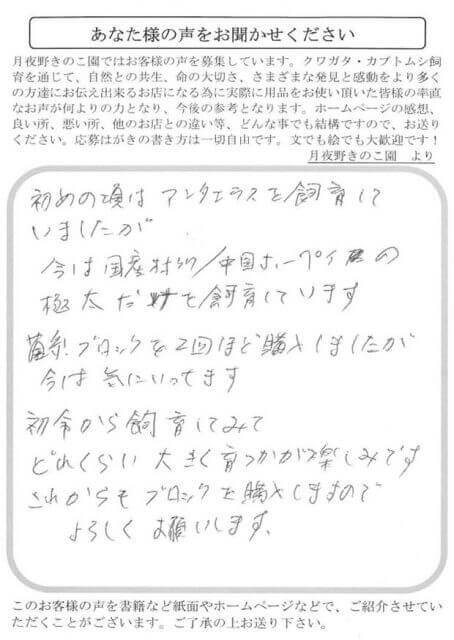 あなた様の声をお聞かせください
月夜野きのこ園ではお客様の声を募集しています。クワガタ・カブトムシ飼
育を通じて、自然との共生、命の大切さ、さまざまな発見と感動をより多く
の方達にお伝え出来るお店になる為に実際に用品をお使い頂いた皆様の率直
なお声が何よりの力となり、今後の参考となります。ホームページの感想、
良い所、悪い所、他のお店との違い等、どんな事でも結構ですので、お送り
ください。応募はがきの書き方は一切自由です。文でも絵でも大歓迎です！
月夜野きのこ園 より
初めの頃は アンタエウスを飼育して
いましたが
今は国産オオクワ/中国ホーペイ の
極太 を飼育しています
菌糸ブロックを2回ほど購入しましたが
今は気にいってます
初令から飼育してみて
どれくらい大きく育つかが楽しみです
これからもブロックを購入しますので
よろしくお願いします。
このお客様の声を書籍など紙面やホームページなどで、ご紹介させてい
ただくことがございます。ご了承の上お送り下さい。